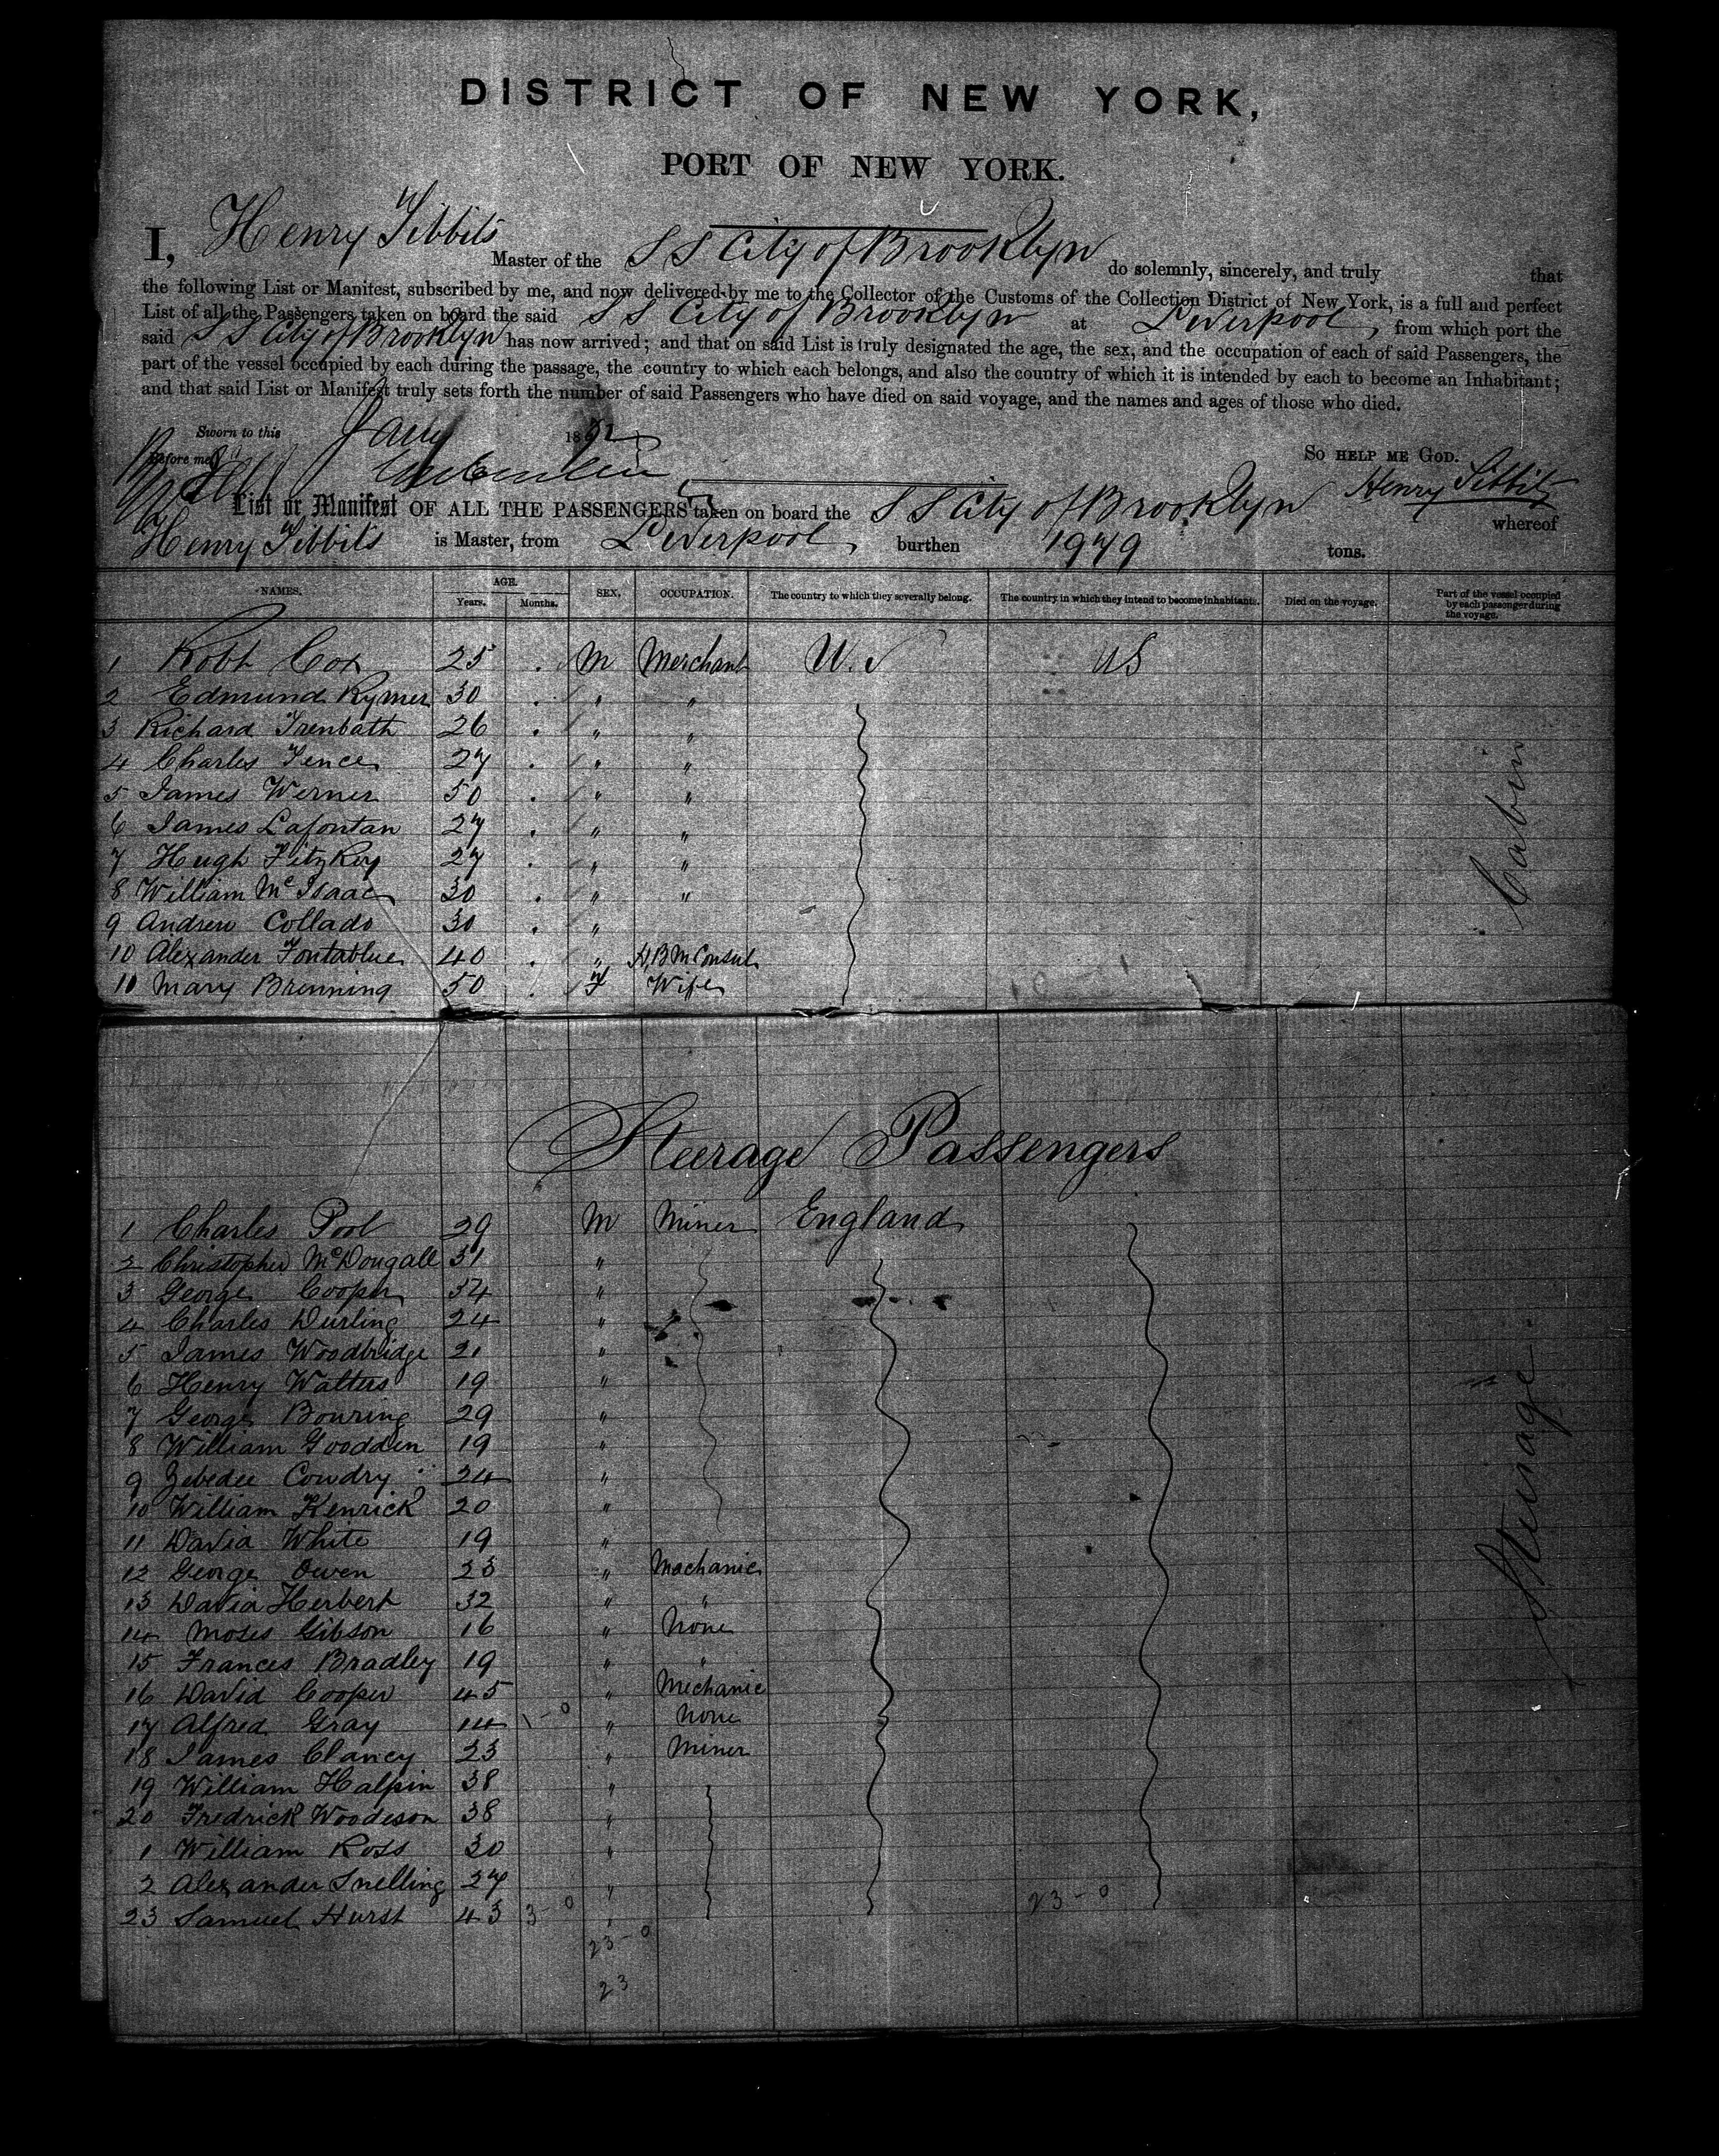 DISTRICT OF NEW YORK,
PORT OF NEW YORK.
I, Henry Tibbits Master of the S S City of Brooklyn do solemnly, sincerely, and truly that
the following List or Manifest, subscribed by me, and now delivered by me to the Collector of the Customs of the Collection District of New York, is a full and perfect
List of all the Passengers taken on board the said S S City of Brooklyn at Liverpool, from which port the
said S S City of Brooklyn has now arrived; and that on said List is truly designated the age, the sex, and the occupation of each of said Passengers, the
part of the vessel occupied by each during the passage, the country to which each belongs, and also the country of which it is intended by each to become an Inhabitant;
and that said List or Manifest truly sets forth the number of said Passengers who have died on said voyage, and the names and ages of those who died.
Sworn to this Jany 18
Before me So HELP ME GOD.
Henry Tibbits
List or Manifest OF ALL THE PASSENGERS taken on board the S S City of Brooklyn whereof
Henry Tibbits is Master, from Liverpool, burthen 1979 tons.
NAMES. AGE. Years. Months. SEX. OCCUPATION. The country to which they severally belong. The country in which they intend to become inhabitants. Died on the voyage. Part of the vessel occupied by each passenger during the voyage.
1 Robt Cox 25 . M Merchant U.S US
2 Edmund Rymer 30 . " "
3 Richard Trenbath 26 . " "
4 Charles Fence 27 . " "
5 James Werner 50 . " "
6 James Lafontan 27 . " "
7 Hugh FitzRoy 27 . " "
8 William McIsaac 30 . " "
9 Andrew Collado 30 . "
10 Alexander Fontablue 40 . " H,B M Consul
11 Mary Brenning 50 . F Wife
Cabin
Steerage Passengers
1 Charles Pool 29 M Miner England
2 Christopher McDougall 31 "
3 George Cooper 34 "
4 Charles Durling 24 "
5 James Woodbridge 21 "
6 Henry Watters 19 "
7 George Bouring 29 "
8 William Goodden 19 "
9 Zebedee Cowdry 24 "
10 William Kenrick 20 "
11 David White 19 "
12 George Owen 23 " Mechanic
13 David Herbert 32 " "
14 Moses Gibson 16 " None
15 Frances Bradley 19 " "
16 David Cooper 45 " Mechanic
17 Alfred Gray 14 1-0 " None
18 James Clancy 23 " Miner
19 William Halpin 38 "
20 Fredrick Woodeson 38 "
1 William Ross 30 "
2 Alexander Snelling 27 "
23 Samuel Hurst 43 3-0 " 23-0
23-0
23
Steerage